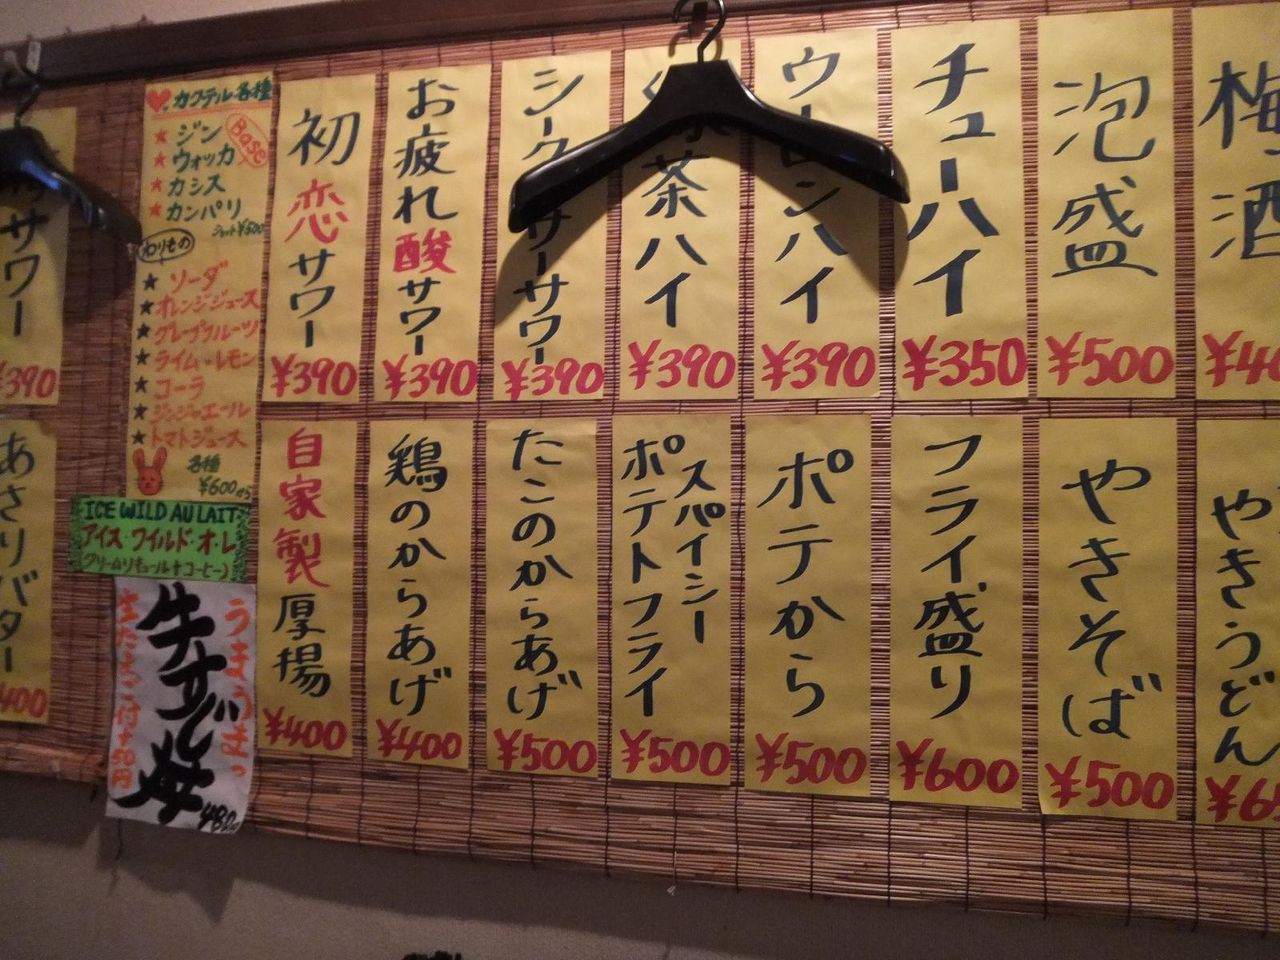 梅酒
泡盛
¥500
チューハイ
¥350
ウーロンハイ
¥390
茶ハイ
¥390
シークヮーサーサワー
¥390
お疲れ酸サワー
¥390
初恋サワー
¥390
カクテル各種
Base
★ ジン
★ ウォッカ
★ カシス
★ カンパリ
ショット¥500
わりもの
★ ソーダ
★ オレンジジュース
★ グレープフルーツ
★ ライム・レモン
★ コーラ
★ ジンジャエール
★ トマトジュース
各種
¥600
サワー
¥390
やきうどん
やきそば
¥500
フライ盛り
¥600
ポテから
¥500
スパイシー
ポテトフライ
¥500
たこのからあげ
¥500
鶏のからあげ
¥400
自家製厚揚
¥400
ICE WILD AU LAIT
アイス・ワイルド・オ・レ
(クリームリキュール+コーヒー)
うまうまっ
牛すじ
480
あさりバター
¥400